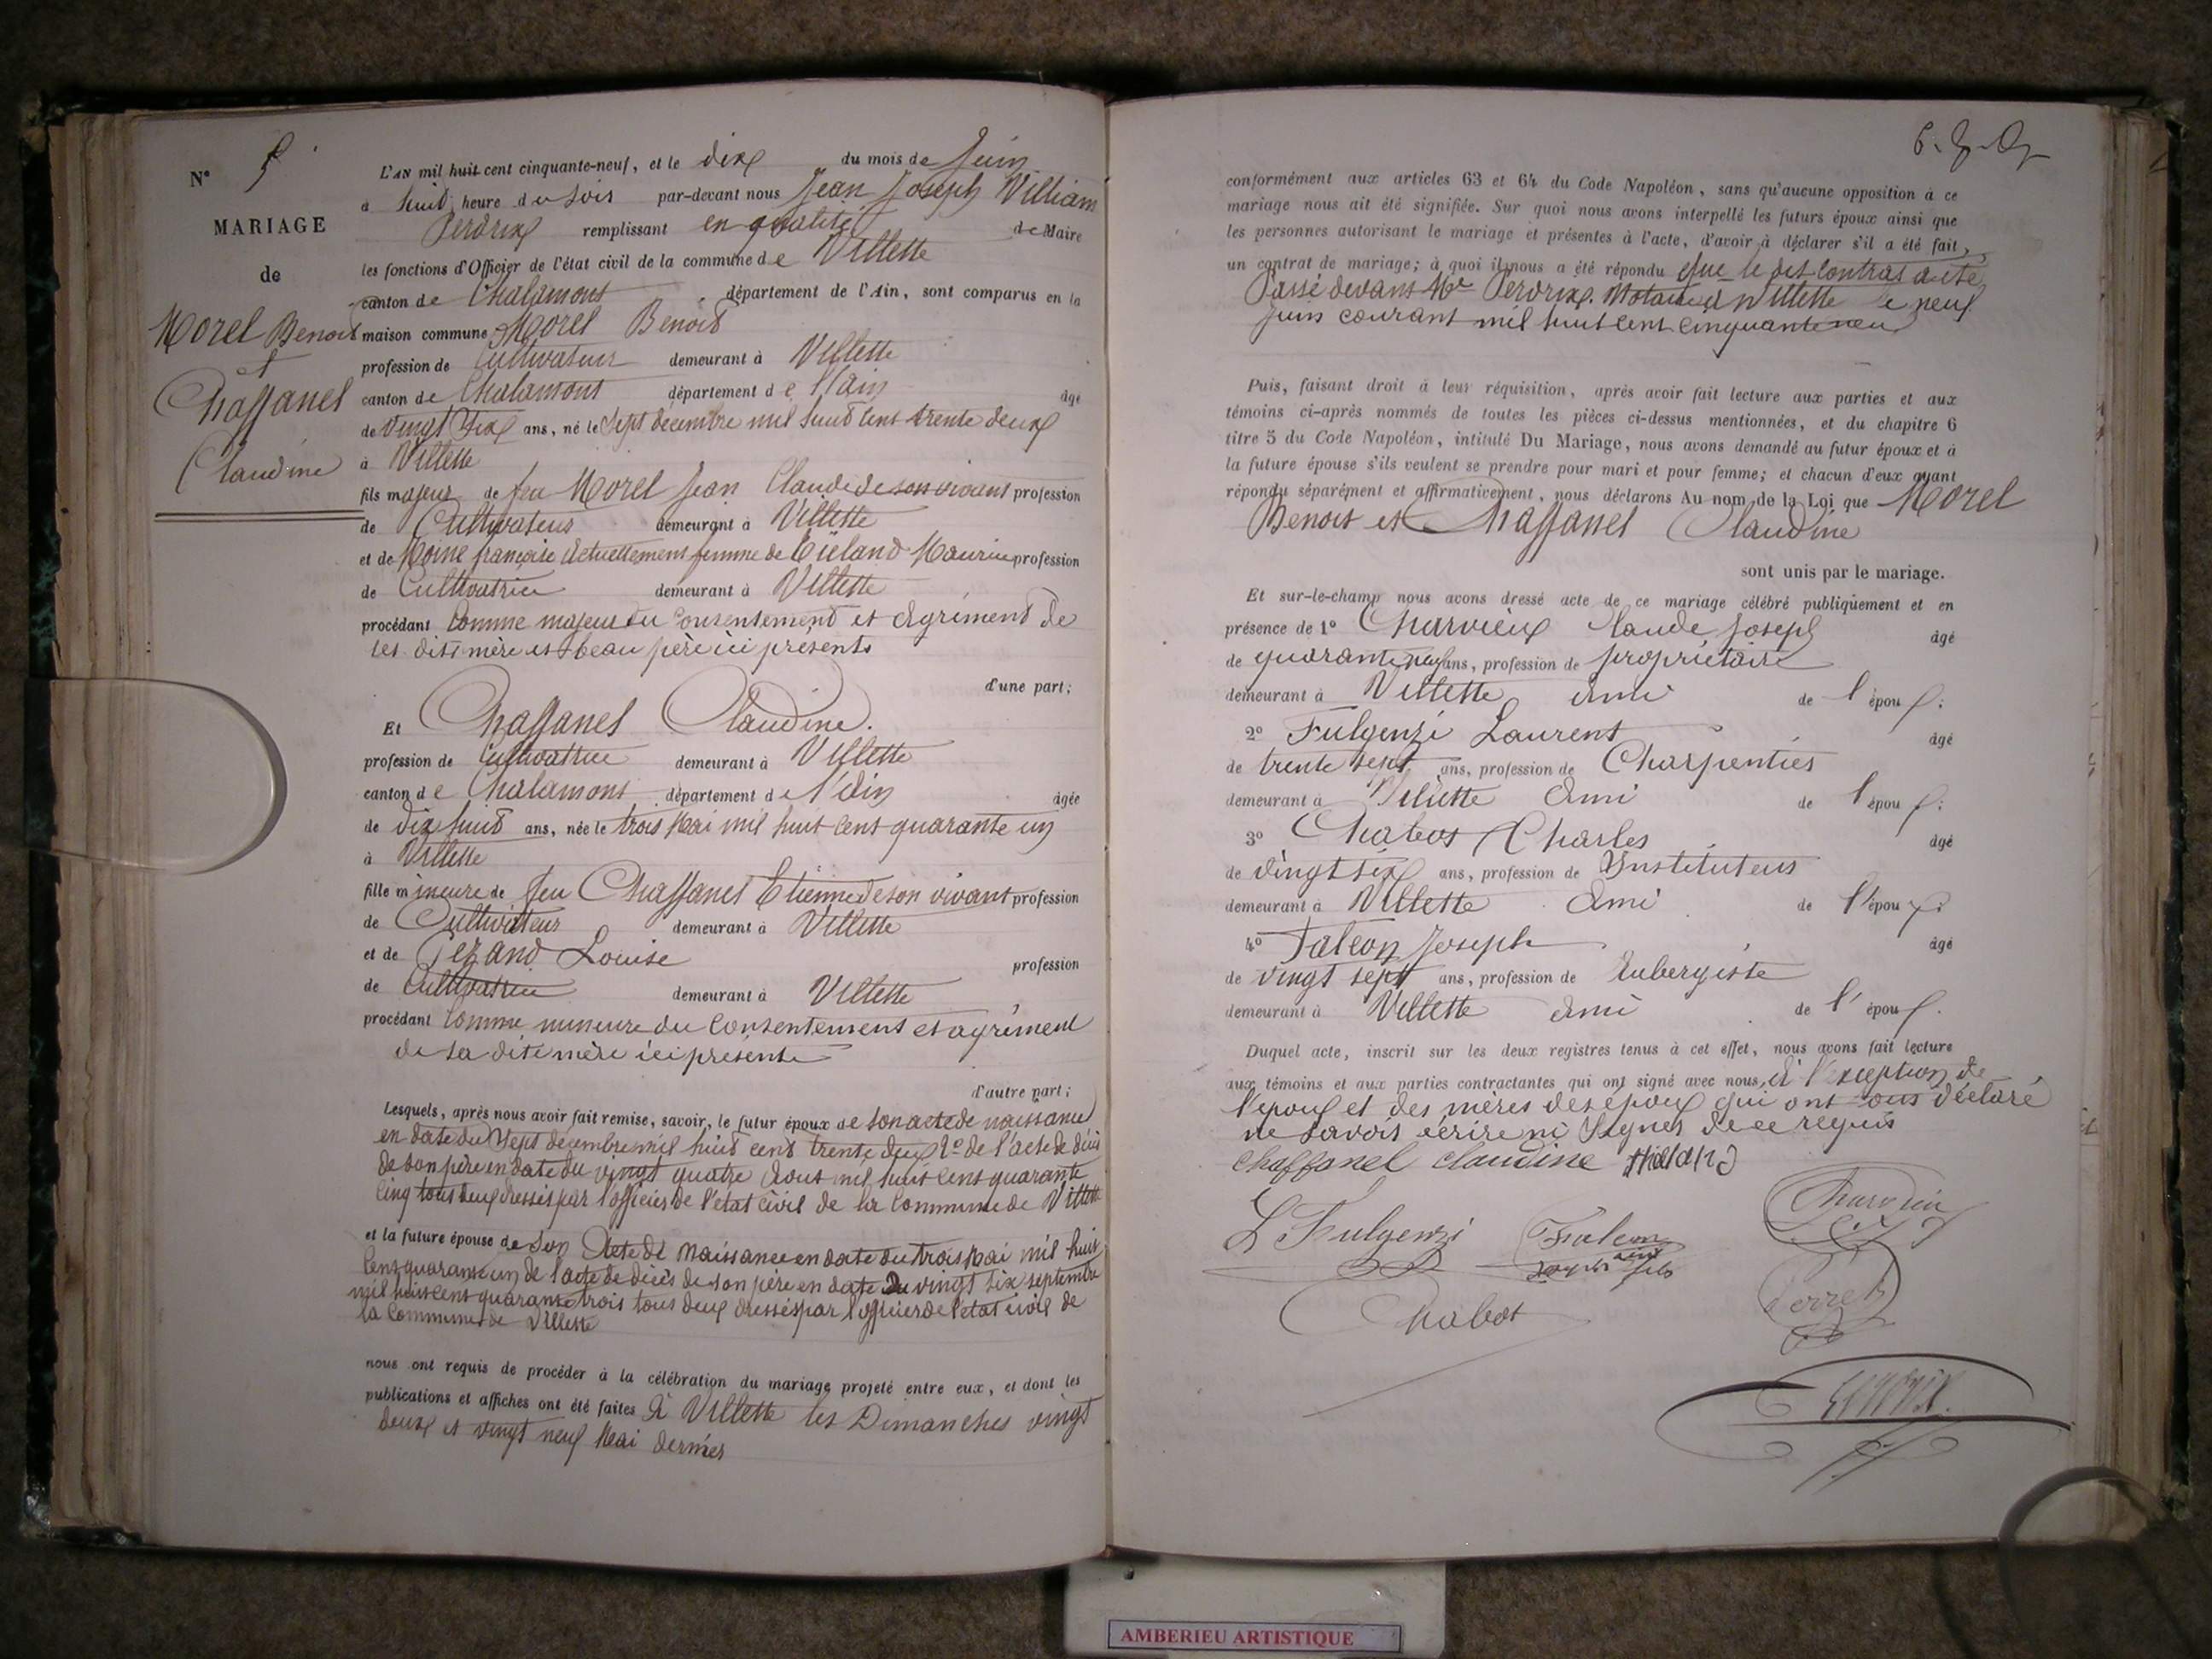 N° 5
MARIAGE
de
Morel Benoit
et
Chaffanel
Claudine
L'AN mil huit cent cinquante-neuf, et le dix du mois de Juin
à huit heure du soir par-devant nous Jean Joseph William
Perdrix remplissant en qualité de Maire
les fonctions d'Officier de l'état civil de la commune de Villette
canton de Chalamont département de l'Ain, sont comparus en la
maison commune Morel Benoit
profession de Cultivateur demeurant à Villette
canton de Chalamont département de l'ain âgé
de vingt six ans, né le sept decembre mil huit cent trente deux
à Villette
fils majeur de feu Morel Jean Claude de son vivant profession
de Cultivateur demeurant à Villette
et de Moine françoise actuellement femme de profession
de Cultivatrice demeurant à Villette
procédant Comme majeur du Consentement et Agrément de
ses dits mère et beau père ici présents
d'une part;
Et Chaffanel Claudine.
profession de Cultivatrice demeurant à Villette
canton de Chalamont département de l'Ain âgée
de dix huit ans, née le trois Mai mil huit cent quarante un
à Villette
fille mineure de feu Chaffanel Etienne de son vivant profession
de Cultivateur demeurant à Villette
et de Louise profession
de Cultivatrice demeurant à Villette
procédant Comme mineure du Consentement et agrément
de sa dite mère ici présente
d'autre part;
Lesquels, après nous avoir fait remise, savoir, le futur époux de son acte de naissance
en date du sept décembre mil huit cent trente deux 2° de l'acte de décès
de son père en date du vingt quatre Aout mil huit cent quarante
cinq tous deux dressés par l'officier de l'état civil de la Commune de Villette
et la future épouse de son Acte de Naissance en date du trois Mai mil huit
cent quarante un de l'acte de décès de son père en date du vingt six septembre
mil huit cent quarante trois tous deux dressés par l'officier de l'etat civil de
la Commune de Villette
nous ont requis de procéder à la célébration du mariage projeté entre eux, et dont les
publications et affiches ont été faites à Villette les Dimanches vingt
deux et vingt neuf Mai dernier
conformément aux articles 63 et 64 du Code Napoléon, sans qu'aucune opposition à ce
mariage nous ait été signifiée. Sur quoi nous avons interpellé les futurs époux ainsi que
les personnes autorisant le mariage et présentes à l'acte, d'avoir à déclarer s'il a été fait
un contrat de mariage; à quoi il nous a été répondu que le dit Contrat a été
Passé devant Me Perdrix Notaire à Villette le neuf
juin courant mil huit cent cinquante neuf
Puis, faisant droit à leur réquisition, après avoir fait lecture aux parties et aux
témoins ci-après nommés de toutes les pièces ci-dessus mentionnées, et du chapitre 6
titre 5 du Code Napoléon, intitulé Du Mariage, nous avons demandé au futur époux et à
la future épouse s'ils veulent se prendre pour mari et pour femme; et chacun d'eux ayant
répondu séparément et affirmativement, nous déclarons Au nom de la Loi que Morel
Benoit et Chaffanel Claudine
sont unis par le mariage.
Et sur-le-champ nous avons dressé acte de ce mariage célébré publiquement et en
présence de 1° Charvieux Claude Joseph âgé
de quarante neuf ans, profession de propriétaire
demeurant à Villette ami de l'époux;
2° Fulgenzi Laurent âgé
de trente sept ans, profession de Charpentier
demeurant à Villette Ami de l'époux;
3° Chabot Charles âgé
de vingt six ans, profession de Instituteur
demeurant à Villette Ami de l'époux;
4° Falcon Joseph âgé
de vingt sept ans, profession de Aubergiste
demeurant à Villette ami de l'époux.
Duquel acte, inscrit sur les deux registres tenus à cet effet, nous avons fait lecture
aux témoins et aux parties contractantes qui ont signé avec nous, à l'exception de
l'époux et des mères des époux qui ont tous déclaré
ne savoir écrire ni signer de ce requis
chaffanel claudine
L Fulgenzi Falcon Charvieu
Joseph fils
Chabot
AMBERIEU ARTISTIQUE